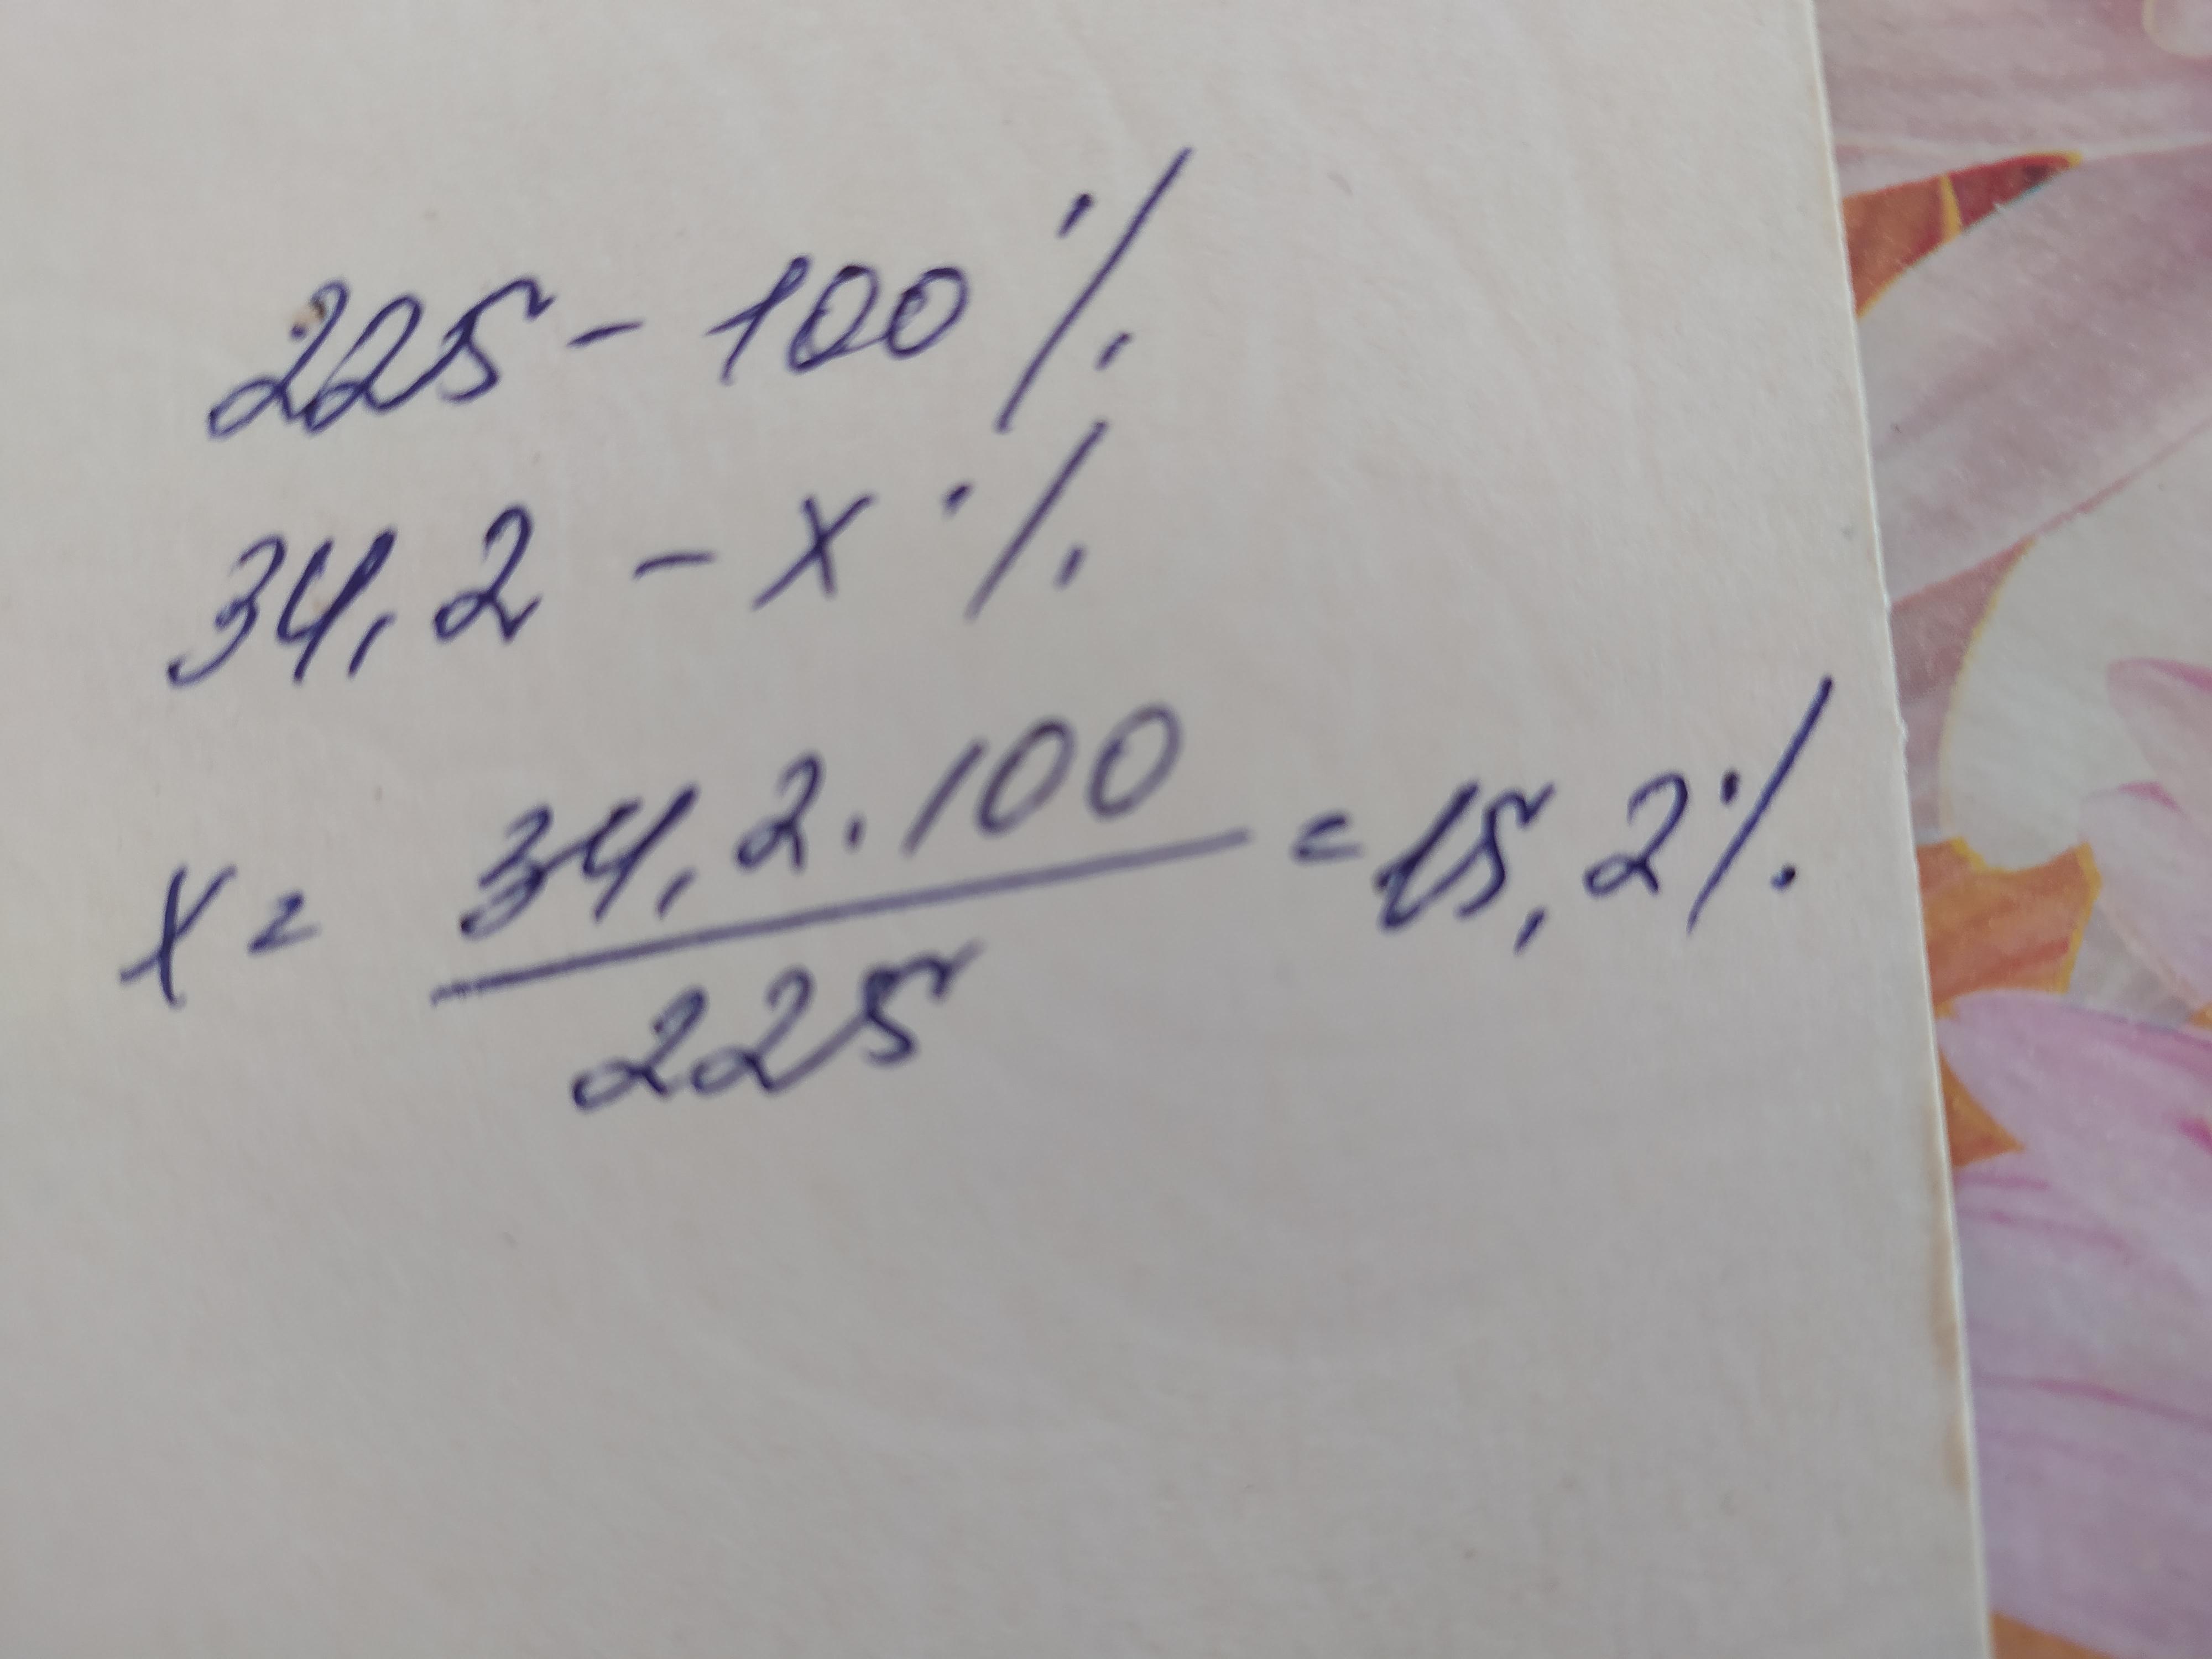 225 - 100 %
34,2 - x %
x = 34,2 . 100 / 225 = 15,2 %